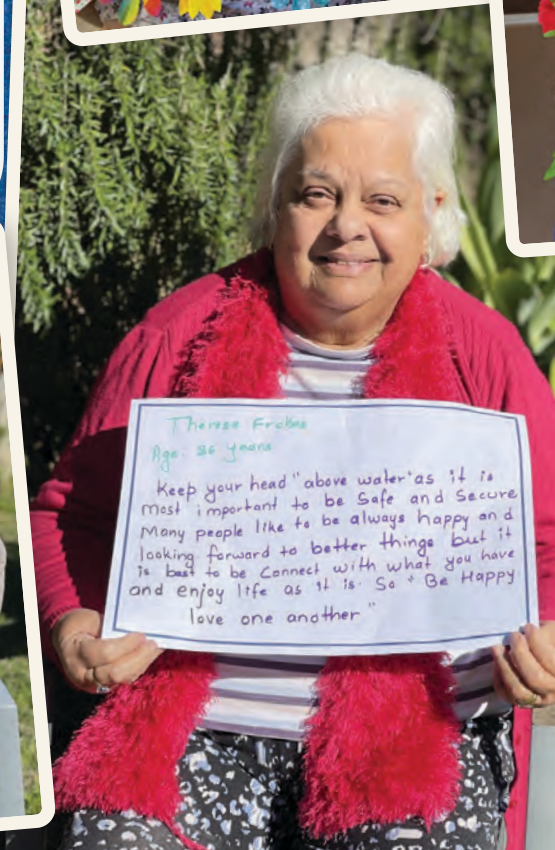 Therese
Age: 86 years
Keep your head "above water" as it is
most important to be Safe and Secure
Many people like to be always happy and
looking forward to better things but it
is best to be Connect with what you have
and enjoy life as it is. So "Be Happy
love one another"